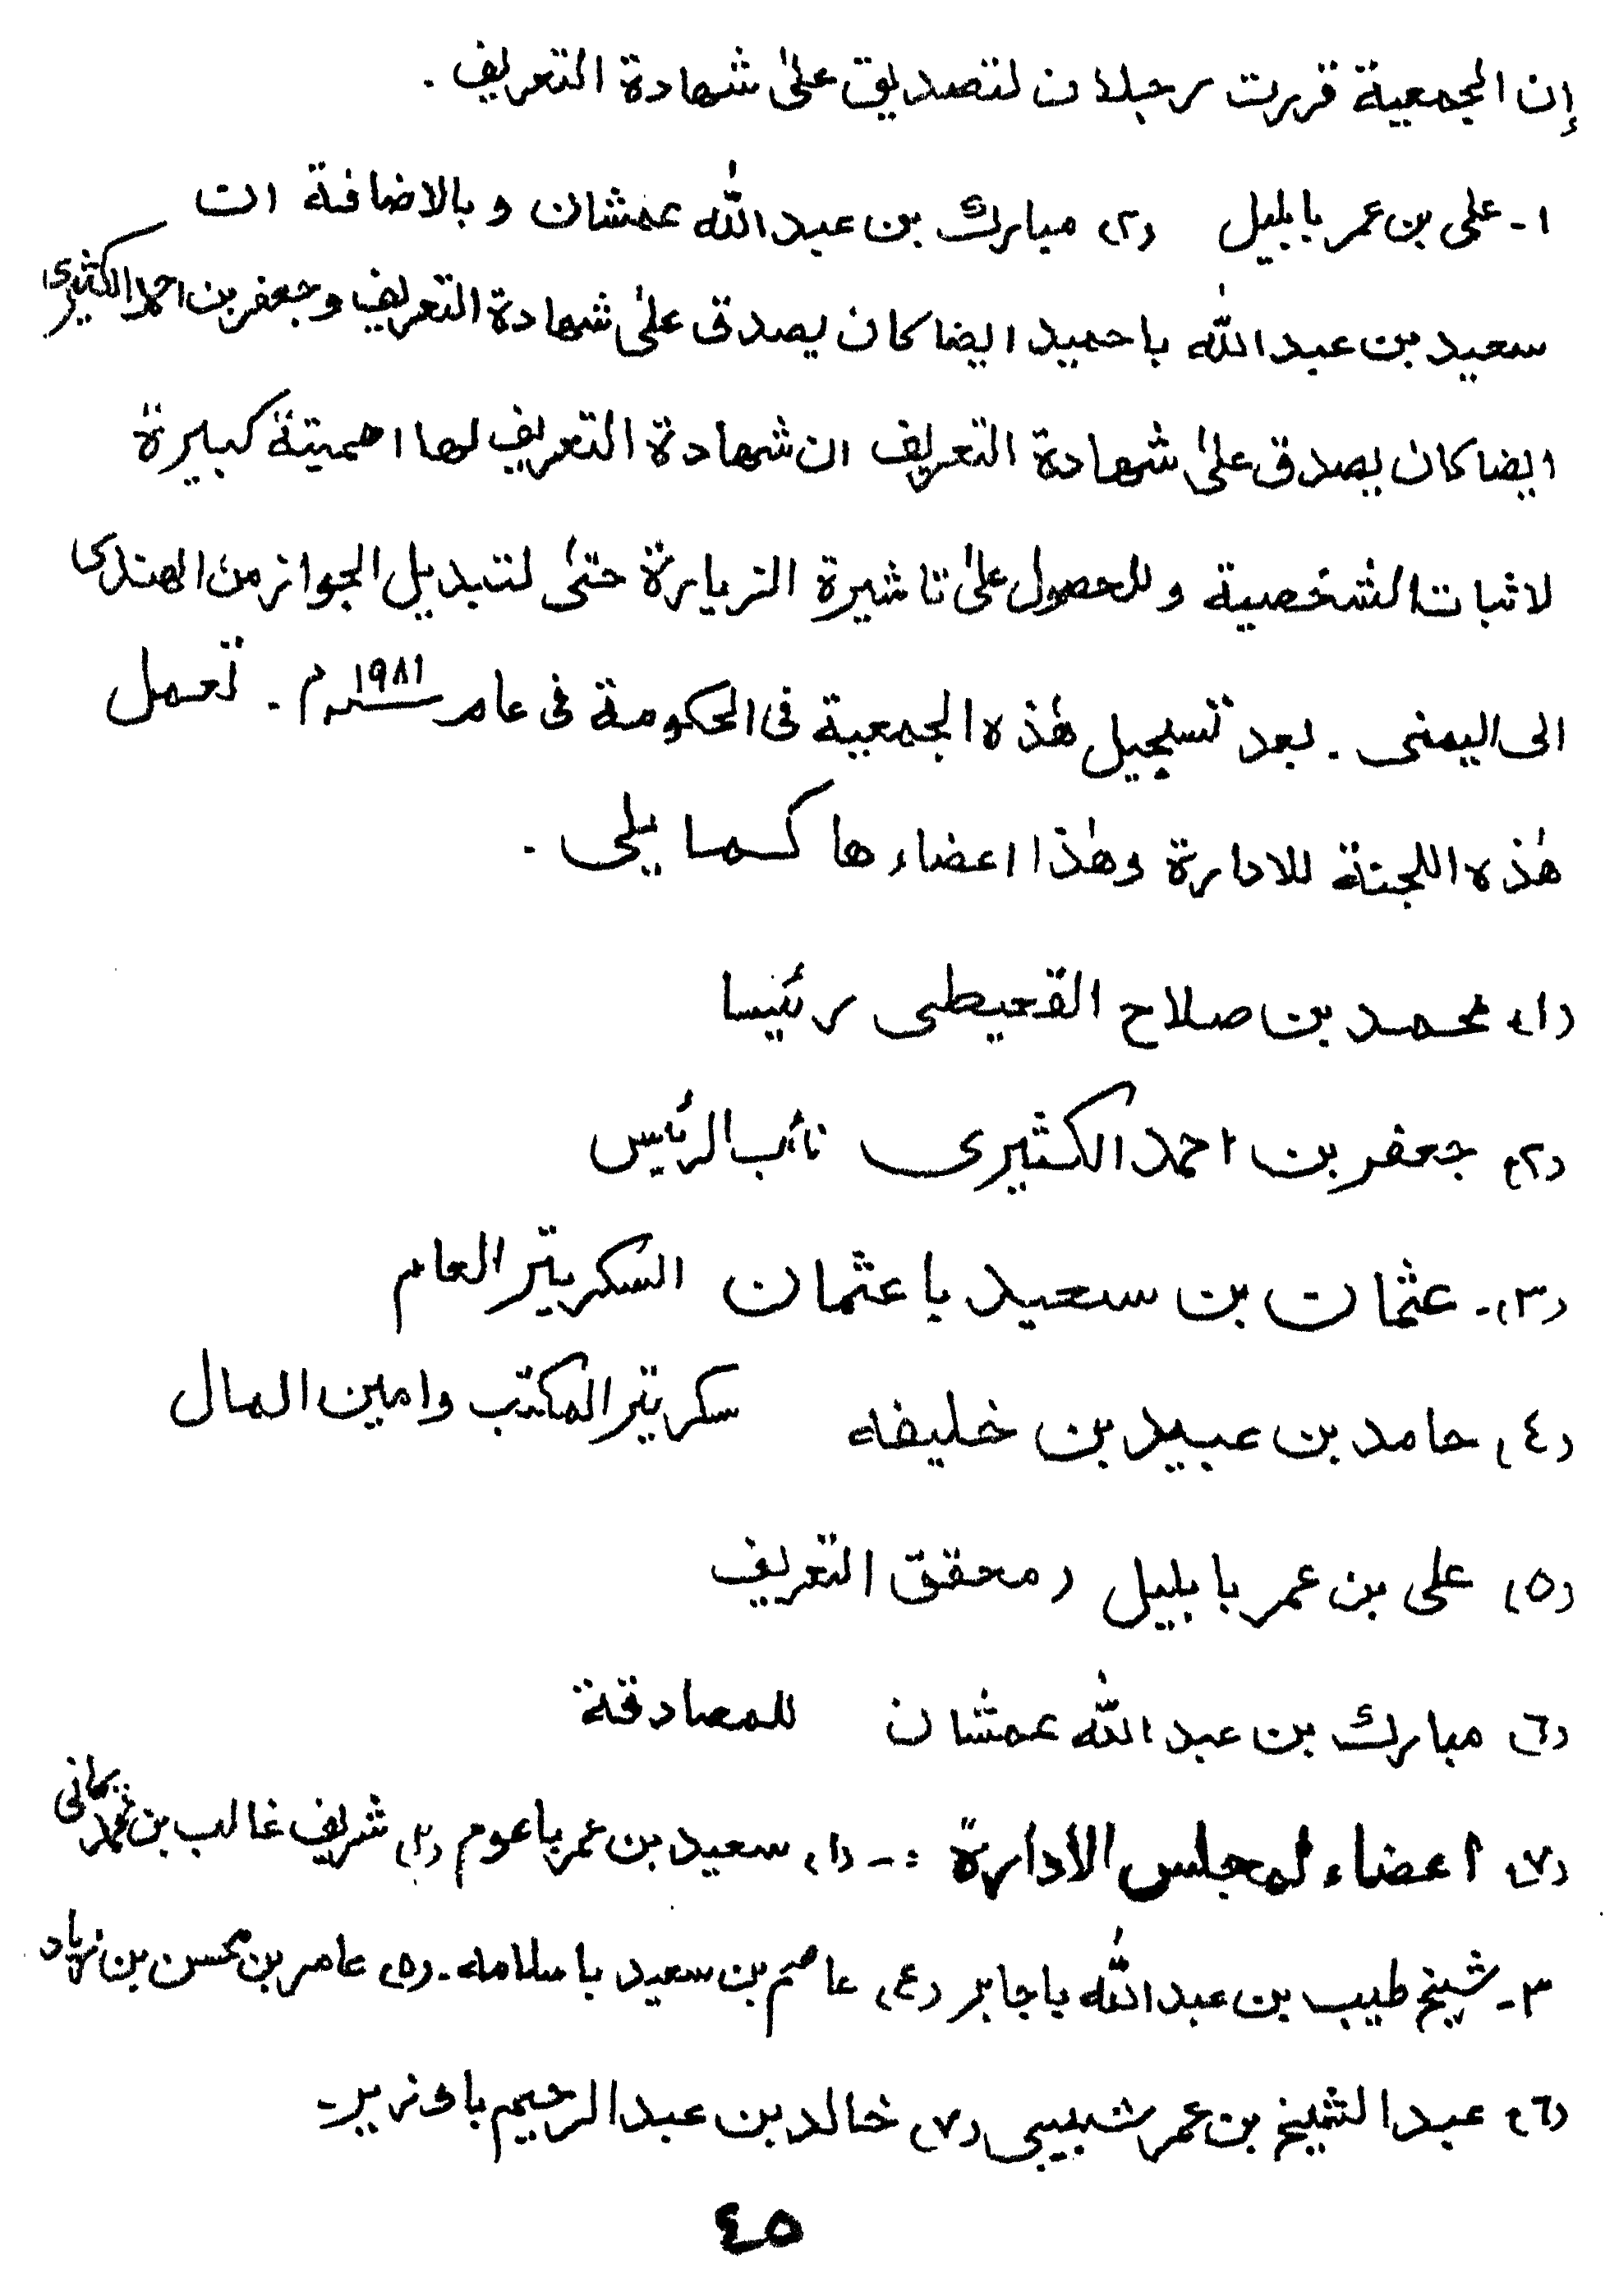 إن الجمعية قررت رجلان لتصديق على شهادة التعريف .
١- على بن عمر بابليل (٢) مبارك بن عبد الله عمشان و بالاضافة ان
سعيد بن عبد الله باحميد ايضا كان يصدق على شهادة التعريف وجعفر بن احمد الكثيرى
ايضا كان يصدق على شهادة التعريف ان شهادة التعريف لها اهميتة كبيرة
لاثبات الشخصية و للحصول على تاشيرة الزيارة حتى لتبديل الجواز من الهندى
الى اليمنى . بعد تسجيل هذه الجمعية فى الحكومة فى عام ١٩٨١م . تعمل
هذه اللجنة للادارة وهذا اعضاءها كما يلى .
(١) محمد بن صلاح القعيطى رئيسا
(٢) جعفر بن احمد الكثيرى نائب الرئيس
(٣)- عثمان بن سعيد باعثمان السكريتر العام
(٤) حامد بن عبيد بن خليفه سكريتر المكتب وامين المال
(٥) على بن عمر بابليل (محقق التعريف
(٦) مبارك بن عبد الله عمشان للمصادقة
(٧) اعضاء لمجلس الادارة :- (١) سعيد بن عمر باعوم (٢) شريف غالب بن محمد يمانى
٣- شيخ طيب بن عبد الله باجابر (٤) عاصم بن سعيد باسلامه - (٥) عامر بن محسن بن زياد
(٦) عبد الشيخ بن عمر شبيبى (٧) خالد بن عبد الرحيم باوزير-
٤٥